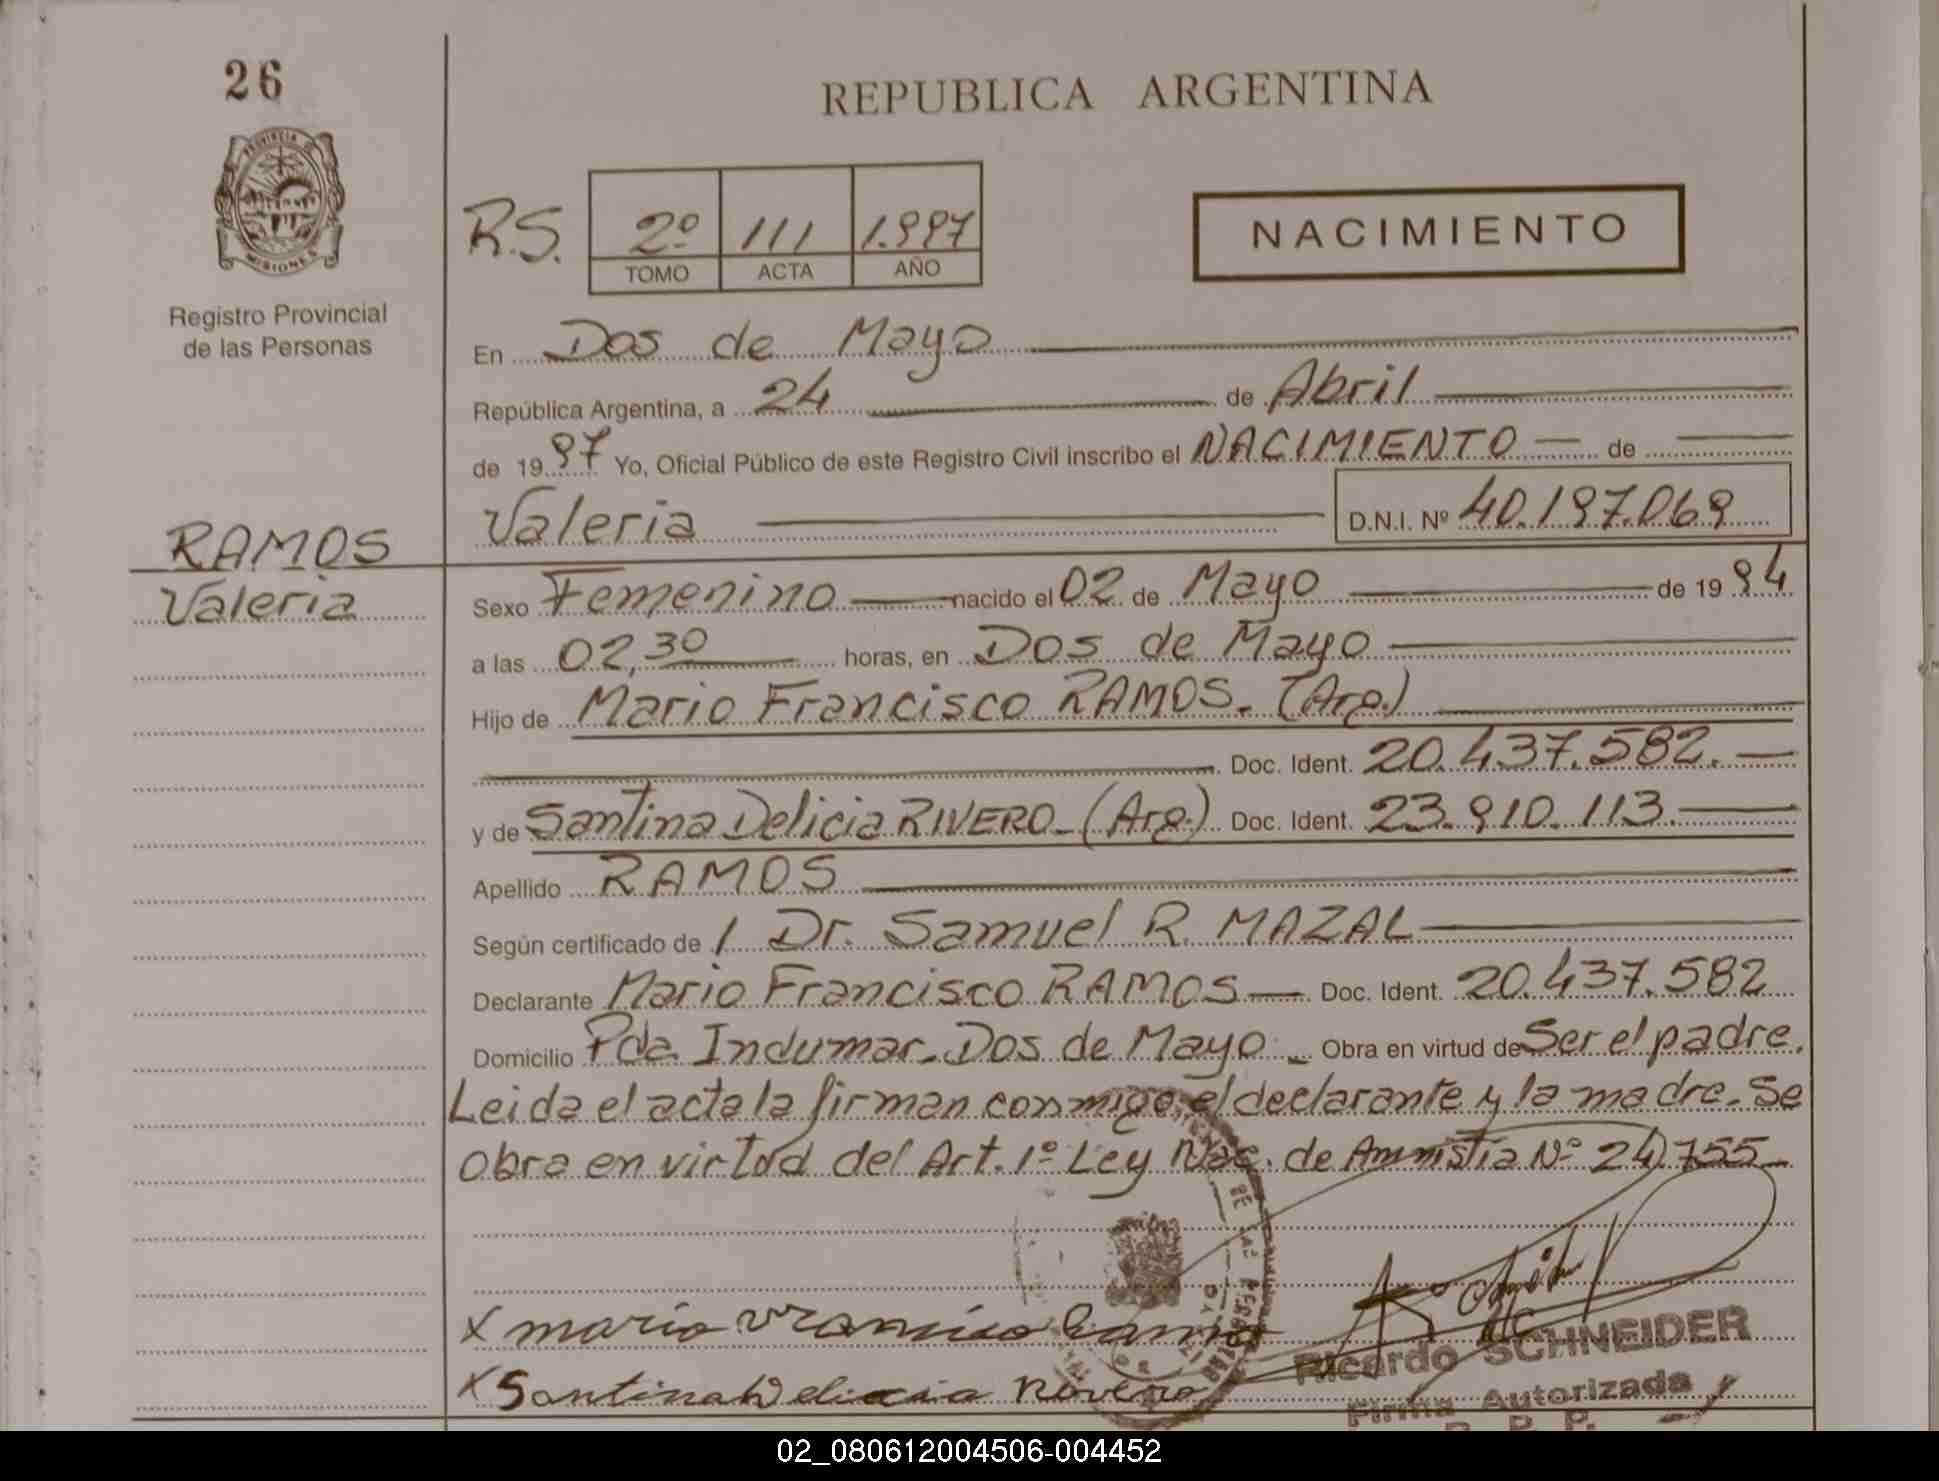 26
REPUBLICA ARGENTINA
PROVINCIA DE
MISIONES
Registro Provincial
de las Personas
R.S.
2º 111 1.997
TOMO ACTA AÑO
NACIMIENTO
En Dos de Mayo
República Argentina, a 24 de Abril
de 1997 Yo, Oficial Público de este Registro Civil inscribo el NACIMIENTO de
Valeria D.N.I. Nº 40.197.069
RAMOS
Valeria
Sexo Femenino nacido el 02 de Mayo de 1994
a las 02,30 horas, en Dos de Mayo
Hijo de Mario Francisco RAMOS. (Arg.)
Doc. Ident. 20.437.582.
y de Santina Delicia RIVERO (Arg.) Doc. Ident. 23.910.113.
Apellido RAMOS
Según certificado de / Dr. Samuel R. MAZAL
Declarante Mario Francisco RAMOS Doc. Ident. 20.437.582
Domicilio Pda. Indumar. Dos de Mayo Obra en virtud de Ser el padre.
Leida el acta la firman conmigo, el declarante y la madre. Se
obra en virtud del Art. 1º Ley Nac. de Amnistia Nº 24.755
X mario
X Santina Delicia
Ricardo SCHNEIDER
Firma Autorizada
R. P. P.
02_080612004506-004452